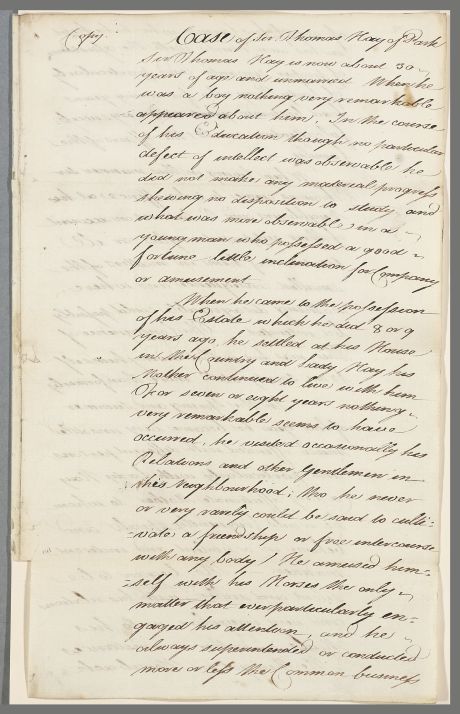 Copy.
Case of Sir Thomas Hay of Park
Sir Thomas Hay is now about 30.
years of age and unmarried When he
was a boy nothing very remarkable
appeared about him. In the course
of his Education though no particular
defect of intellect was observable he
did not make any material progress
shewing no disposition to study and
what was more observable in a
young man who possessed a good
fortune little inclination for Company
or amusement
When he came to the possession
of his Estate which he did 8 or 9
years ago he settled at his House
in the Country and Lady Hay his
Mother continued to live with him
For seven or eight years nothing
very remarkable seems to have
occurred, he visited occasionally his
Relations and other Gentlemen in
this neighbourhood; tho he never
or very rarely could be said to culti-
-vate a friendship or free intercourse
with any body! He amused him-
-self with his Horses the only
matter that ever particularly en-
gaged his attention, and he
always superintended or conducted
more or less the Common business